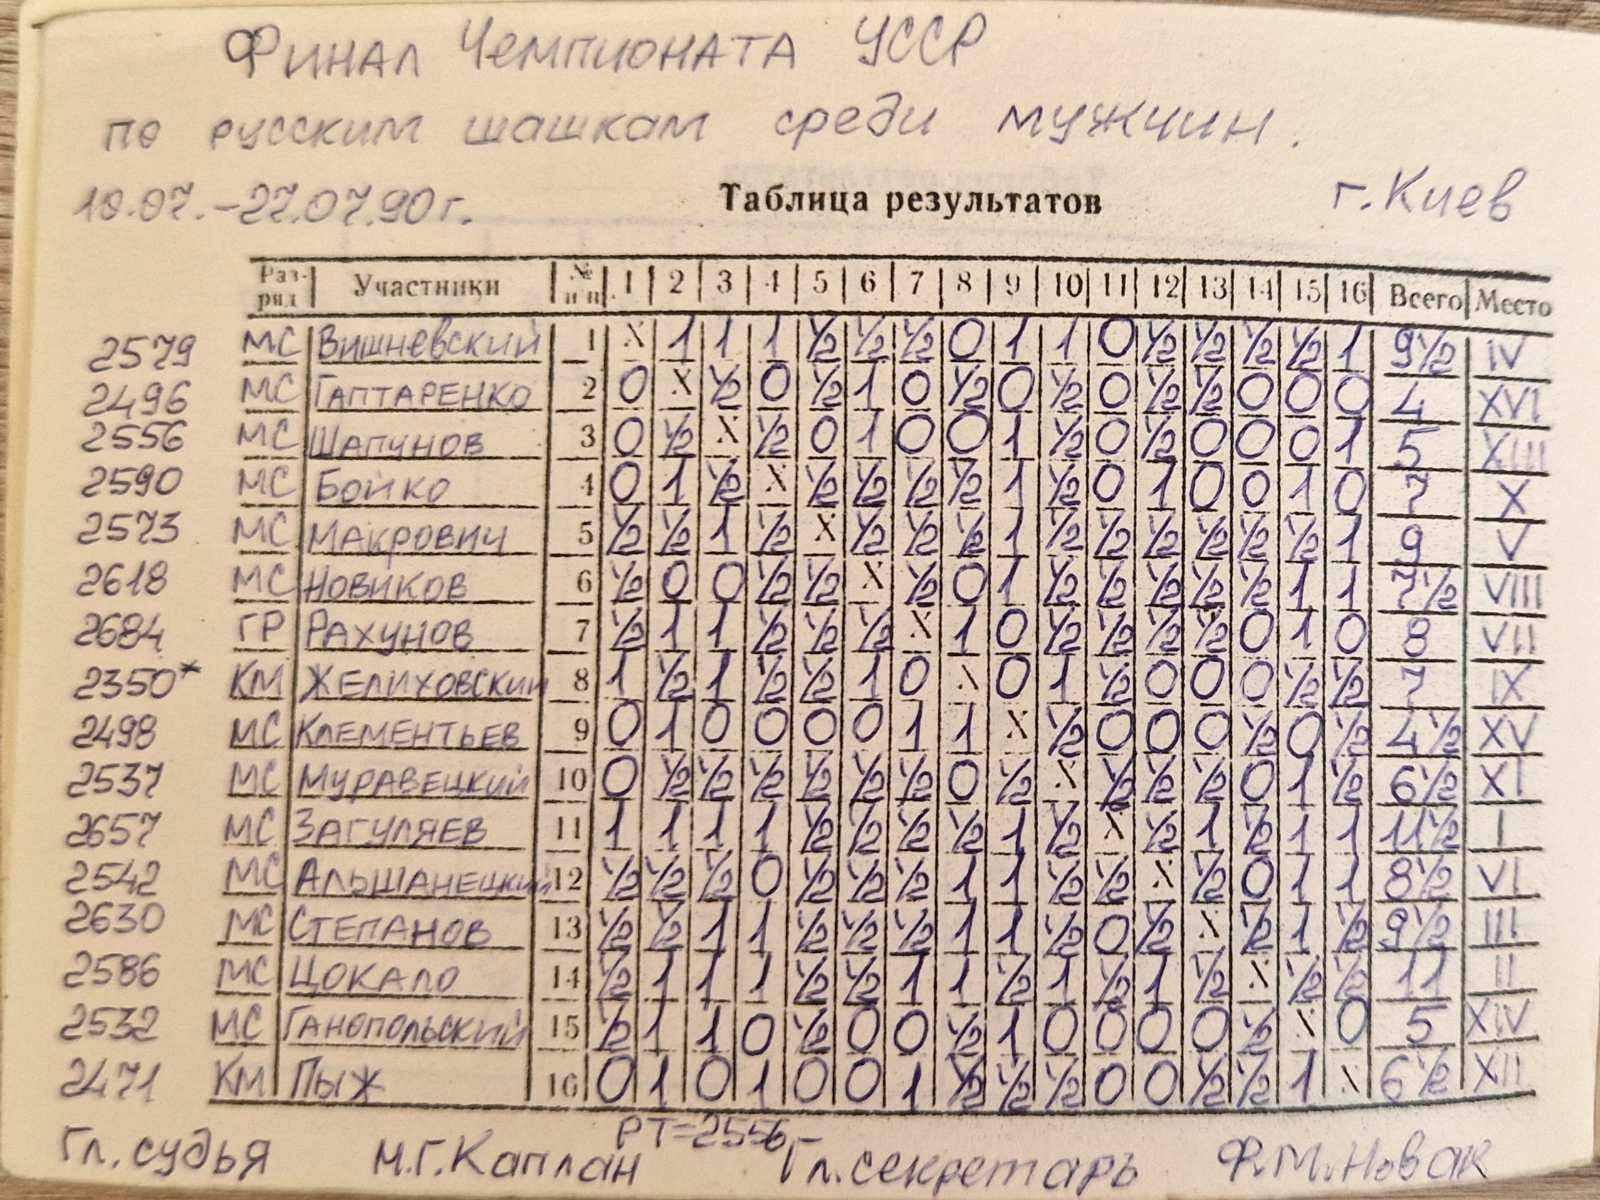 Финал Чемпионата УССР
по русским шашкам среди мужчин.
10.07.-27.07.90г. Таблица результатов г. Киев
Раз-ряд Участники № п п. 1 2 3 4 5 6 7 8 9 10 11 12 13 14 15 16 Всего Место
2579 МС Вишневский 1 X 1 1 1 1/2 1/2 1/2 0 1 1 0 1/2 1/2 1/2 1/2 1 9 1/2 IV
2496 МС Гаптаренко 2 0 X 1/2 0 1/2 1 0 1/2 0 1/2 0 1/2 1/2 0 0 0 4 XVI
2556 МС Шапунов 3 0 1/2 X 1/2 0 1 0 0 1 1/2 0 1/2 0 0 0 1 5 XIII
2590 МС Бойко 4 0 1 1/2 X 1/2 1/2 1/2 1/2 1 1/2 0 1 0 0 1 0 7 X
2573 МС Макрович 5 1/2 1/2 1 1/2 X 1/2 1/2 1/2 1 1/2 1/2 1/2 1/2 1/2 1/2 1 9 V
2618 МС Новиков 6 1/2 0 0 1/2 1/2 X 1/2 0 1 1/2 1/2 1/2 1/2 1/2 1 1 7 1/2 VIII
2684 ГР Рахунов 7 1/2 1 1 1/2 1/2 1/2 X 1 0 1/2 1/2 1/2 1/2 0 1 0 8 VII
2350* КМ Желиховский 8 1 1/2 1 1/2 1/2 1 0 X 0 1 1/2 0 0 0 1/2 1/2 7 IX
2498 МС Клементьев 9 0 1 0 0 0 0 1 1 X 1/2 0 0 0 1/2 0 1/2 4 1/2 XV
2537 МС Муравецкий 10 0 1/2 1/2 1/2 1/2 1/2 1/2 0 1/2 X 1/2 1/2 1/2 0 1 1/2 6 1/2 XI
2657 МС Загуляев 11 1 1 1 1 1/2 1/2 1/2 1/2 1 1/2 X 1/2 1 1/2 1 1 11 1/2 I
2542 МС Альшанецкий 12 1/2 1/2 1/2 0 1/2 1/2 1/2 1 1 1/2 1/2 X 1/2 0 1 1 8 1/2 VI
2630 МС Степанов 13 1/2 1/2 1 1 1/2 1/2 1/2 1 1 1/2 0 1/2 X 1/2 1 1/2 9 1/2 III
2586 МС Цокало 14 1/2 1 1 1 1/2 1/2 1 1 1/2 1 1/2 1 1/2 X 1/2 1/2 11 II
2532 МС Ганопольский 15 1/2 1 1 0 1/2 0 0 1/2 1 0 0 0 0 1/2 X 0 5 XIV
2471 КМ Пыж 16 0 1 0 1 0 0 1 1/2 1/2 1/2 0 0 1/2 1/2 1 X 6 1/2 XII
РТ=2556
Гл. судья М.Г. Каплан Гл. секретарь Ф.М. Новак